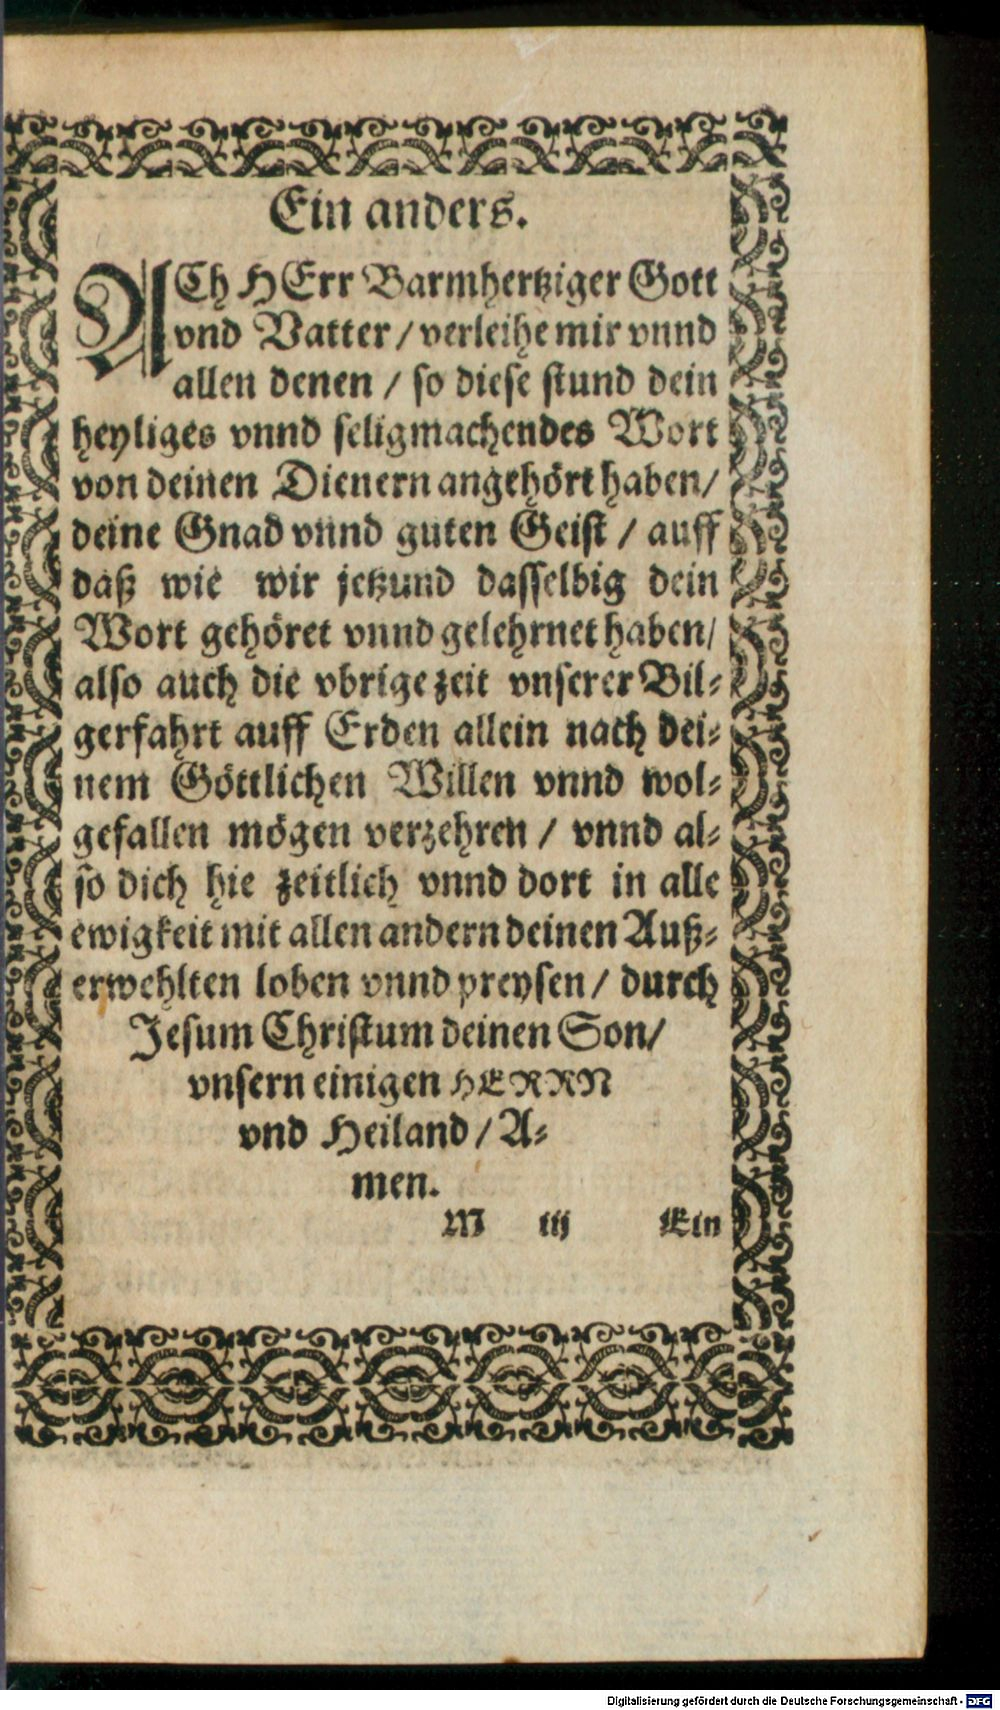 Ein anders.
ACh HErr Barmhertziger Gott
vnd Vatter / verleihe mir vnnd
allen denen / so diese stund dein
heyliges vnnd seligmachendes Wort
von deinen Dienern angehört haben/
deine Gnad vnnd guten Geist / auff
daß wie wir jetzund dasselbig dein
Wort gehöret vnnd gelehrnet haben/
also auch die vbrige zeit vnserer Bil⸗
gerfahrt auff Erden allein nach dei⸗
nem Göttlichen Willen vnnd wol⸗
gefallen mögen verzehren / vnnd al⸗
so dich hie zeitlich vnnd dort in alle
ewigkeit mit allen andern deinen Auß⸗
erwehlten loben vnnd preysen / durch
Jesum Christum deinen Son/
vnsern einigen HERRN
vnd Heiland / A⸗
men.
M iij Ein
Digitalisierung gefördert durch die Deutsche Forschungsgemeinschaft - DFG